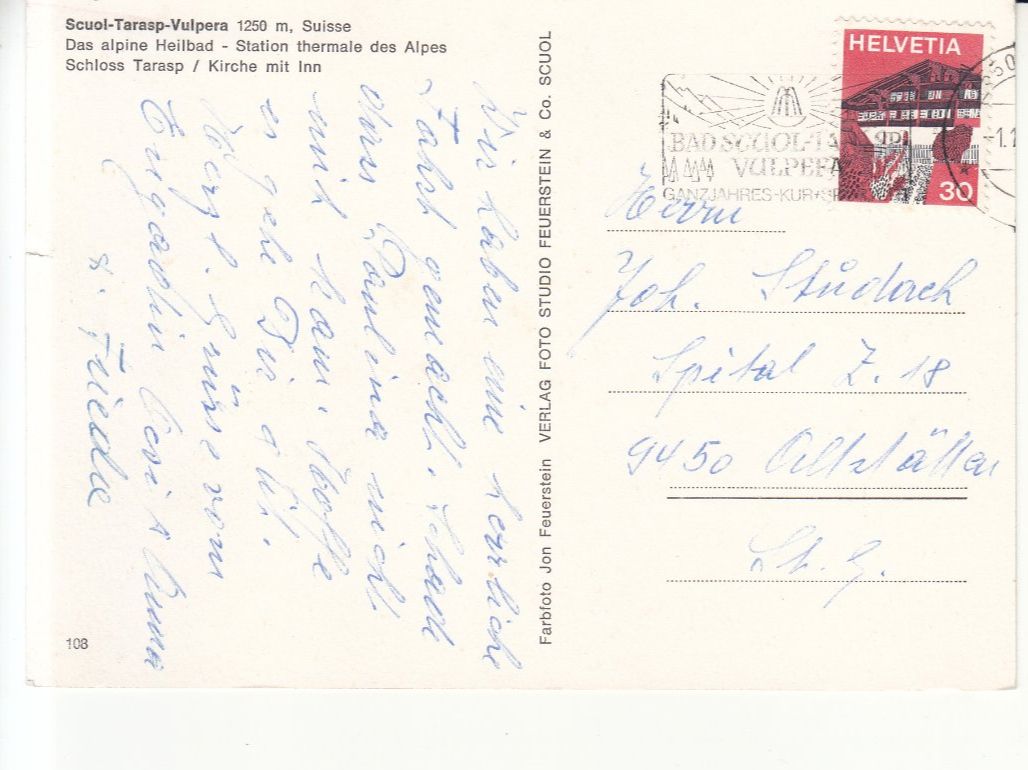 Scuol-Tarasp-Vulpera 1250 m, Suisse
Das alpine Heilbad - Station thermale des Alpes
Schloss Tarasp / Kirche mit Inn
Wir haben eine herrliche
Fahrt gemacht. Schade
dass Paulina nicht
mit kam. Hoffe
es gehe Dir gut.
Herzl. Grüsse vom
Engadin
& Friedle
108
Farbfoto Jon Feuerstein VERLAG FOTO STUDIO FEUERSTEIN & Co. SCUOL
HELVETIA
30
BAD SCUOL-TARASP
VULPERA
GANZJAHRES-KUR+SP
-1.
Herrn
Joh. Studach
Spital Z. 18
9450 Altstätten
St. G.